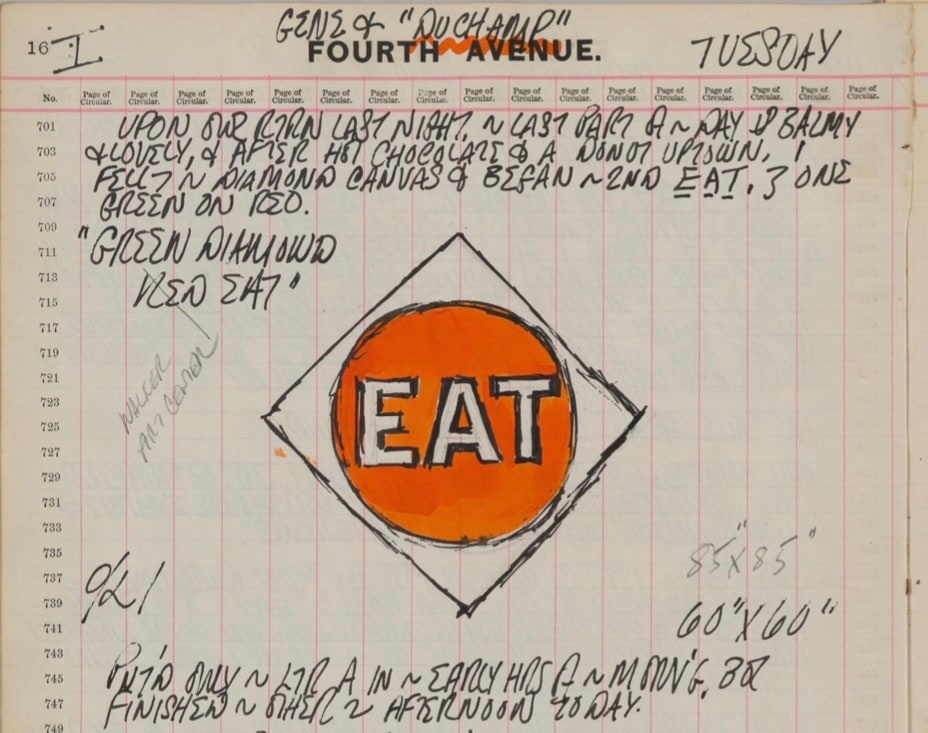 GENE & "DUCHAMP"
16 I FOURTH AVENUE. TUESDAY
No. Page of Circular. Page of Circular. Page of Circular. Page of Circular. Page of Circular. Page of Circular. Page of Circular. Page of Circular. Page of Circular. Page of Circular. Page of Circular. Page of Circular. Page of Circular. Page of Circular. Page of Circular. Page of Circular. Page of Circular.
701 UPON OUR RTRN LAST NIGHT, ~ LAST PART OF ~ DAY BALMY
703 & LOVELY, & AFTER HOT CHOCOLATE & A DONUT UPTOWN, I
705 FELL ~ DIAMOND CANVAS & BEGAN ~ 2ND EAT, ONE
707 GREEN ON RED.
709
711 "GREEN DIAMOND
713 RED EAT"
715
717
719
721
723 EAT
725 WALKER
727 ART CENTER
729
731
733
735 85"X85"
737
739
741 60"X60"
743
745 PNT'D ONLY ~ LTR A IN ~ EARLY HRS OF ~ MORN'G,
747 FINISHED ~ OTHER 2 AFTERNOON TODAY.
749